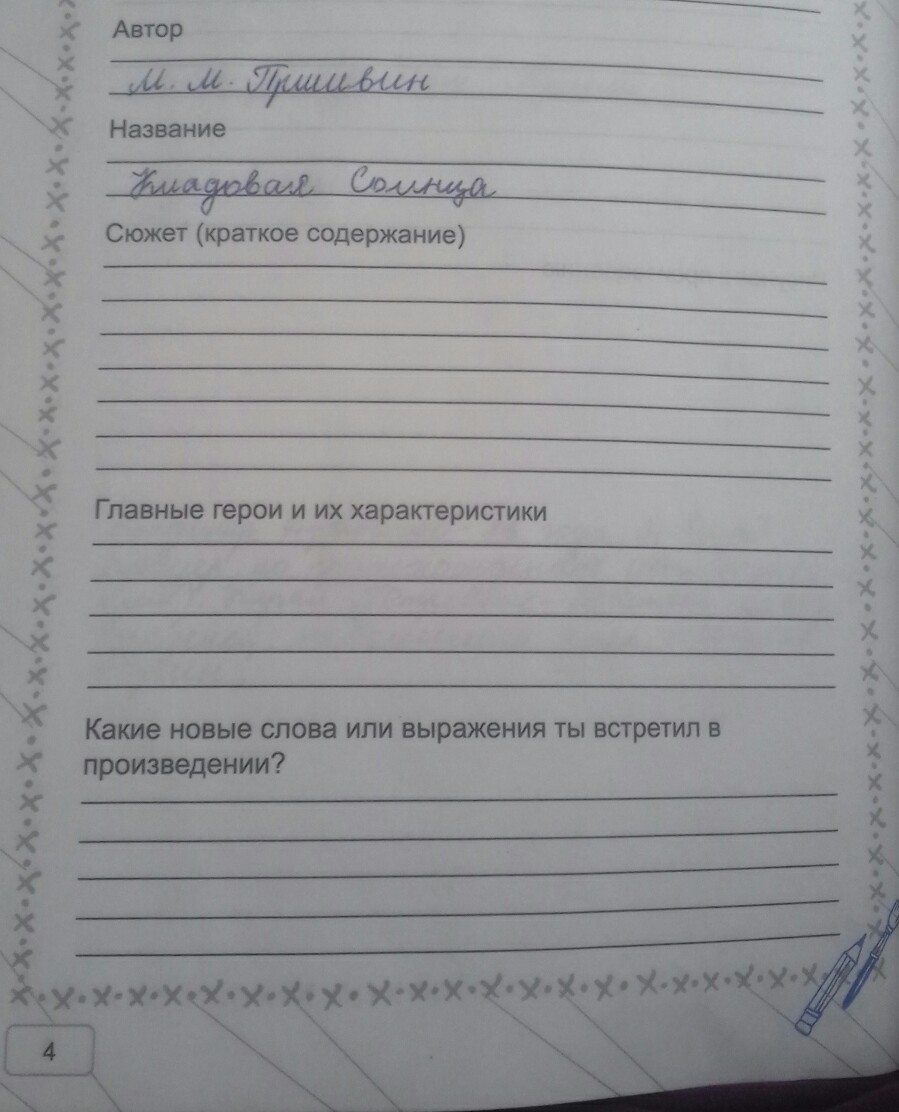 Автор
М. М. Пришвин
Название
Кладовая Солнца
Сюжет (краткое содержание)
Главные герои и их характеристики
Какие новые слова или выражения ты встретил в
произведении?
4